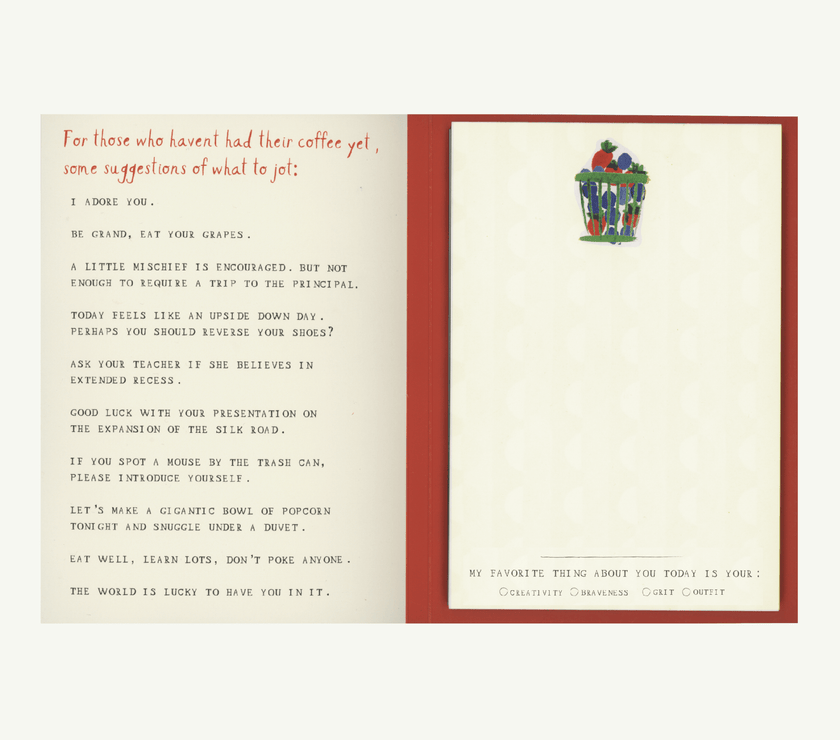 For those who havent had their coffee yet,
some suggestions of what to jot:
I ADORE YOU.
BE GRAND, EAT YOUR GRAPES.
A LITTLE MISCHIEF IS ENCOURAGED. BUT NOT
ENOUGH TO REQUIRE A TRIP TO THE PRINCIPAL.
TODAY FEELS LIKE AN UPSIDE DOWN DAY.
PERHAPS YOU SHOULD REVERSE YOUR SHOES?
ASK YOUR TEACHER IF SHE BELIEVES IN
EXTENDED RECESS.
GOOD LUCK WITH YOUR PRESENTATION ON
THE EXPANSION OF THE SILK ROAD.
IF YOU SPOT A MOUSE BY THE TRASH CAN,
PLEASE INTRODUCE YOURSELF.
LET'S MAKE A GIGANTIC BOWL OF POPCORN
TONIGHT AND SNUGGLE UNDER A DUVET.
EAT WELL, LEARN LOTS, DON'T POKE ANYONE.
THE WORLD IS LUCKY TO HAVE YOU IN IT.
MY FAVORITE THING ABOUT YOU TODAY IS YOUR:
CREATIVITY BRAVENESS GRIT OUTFIT